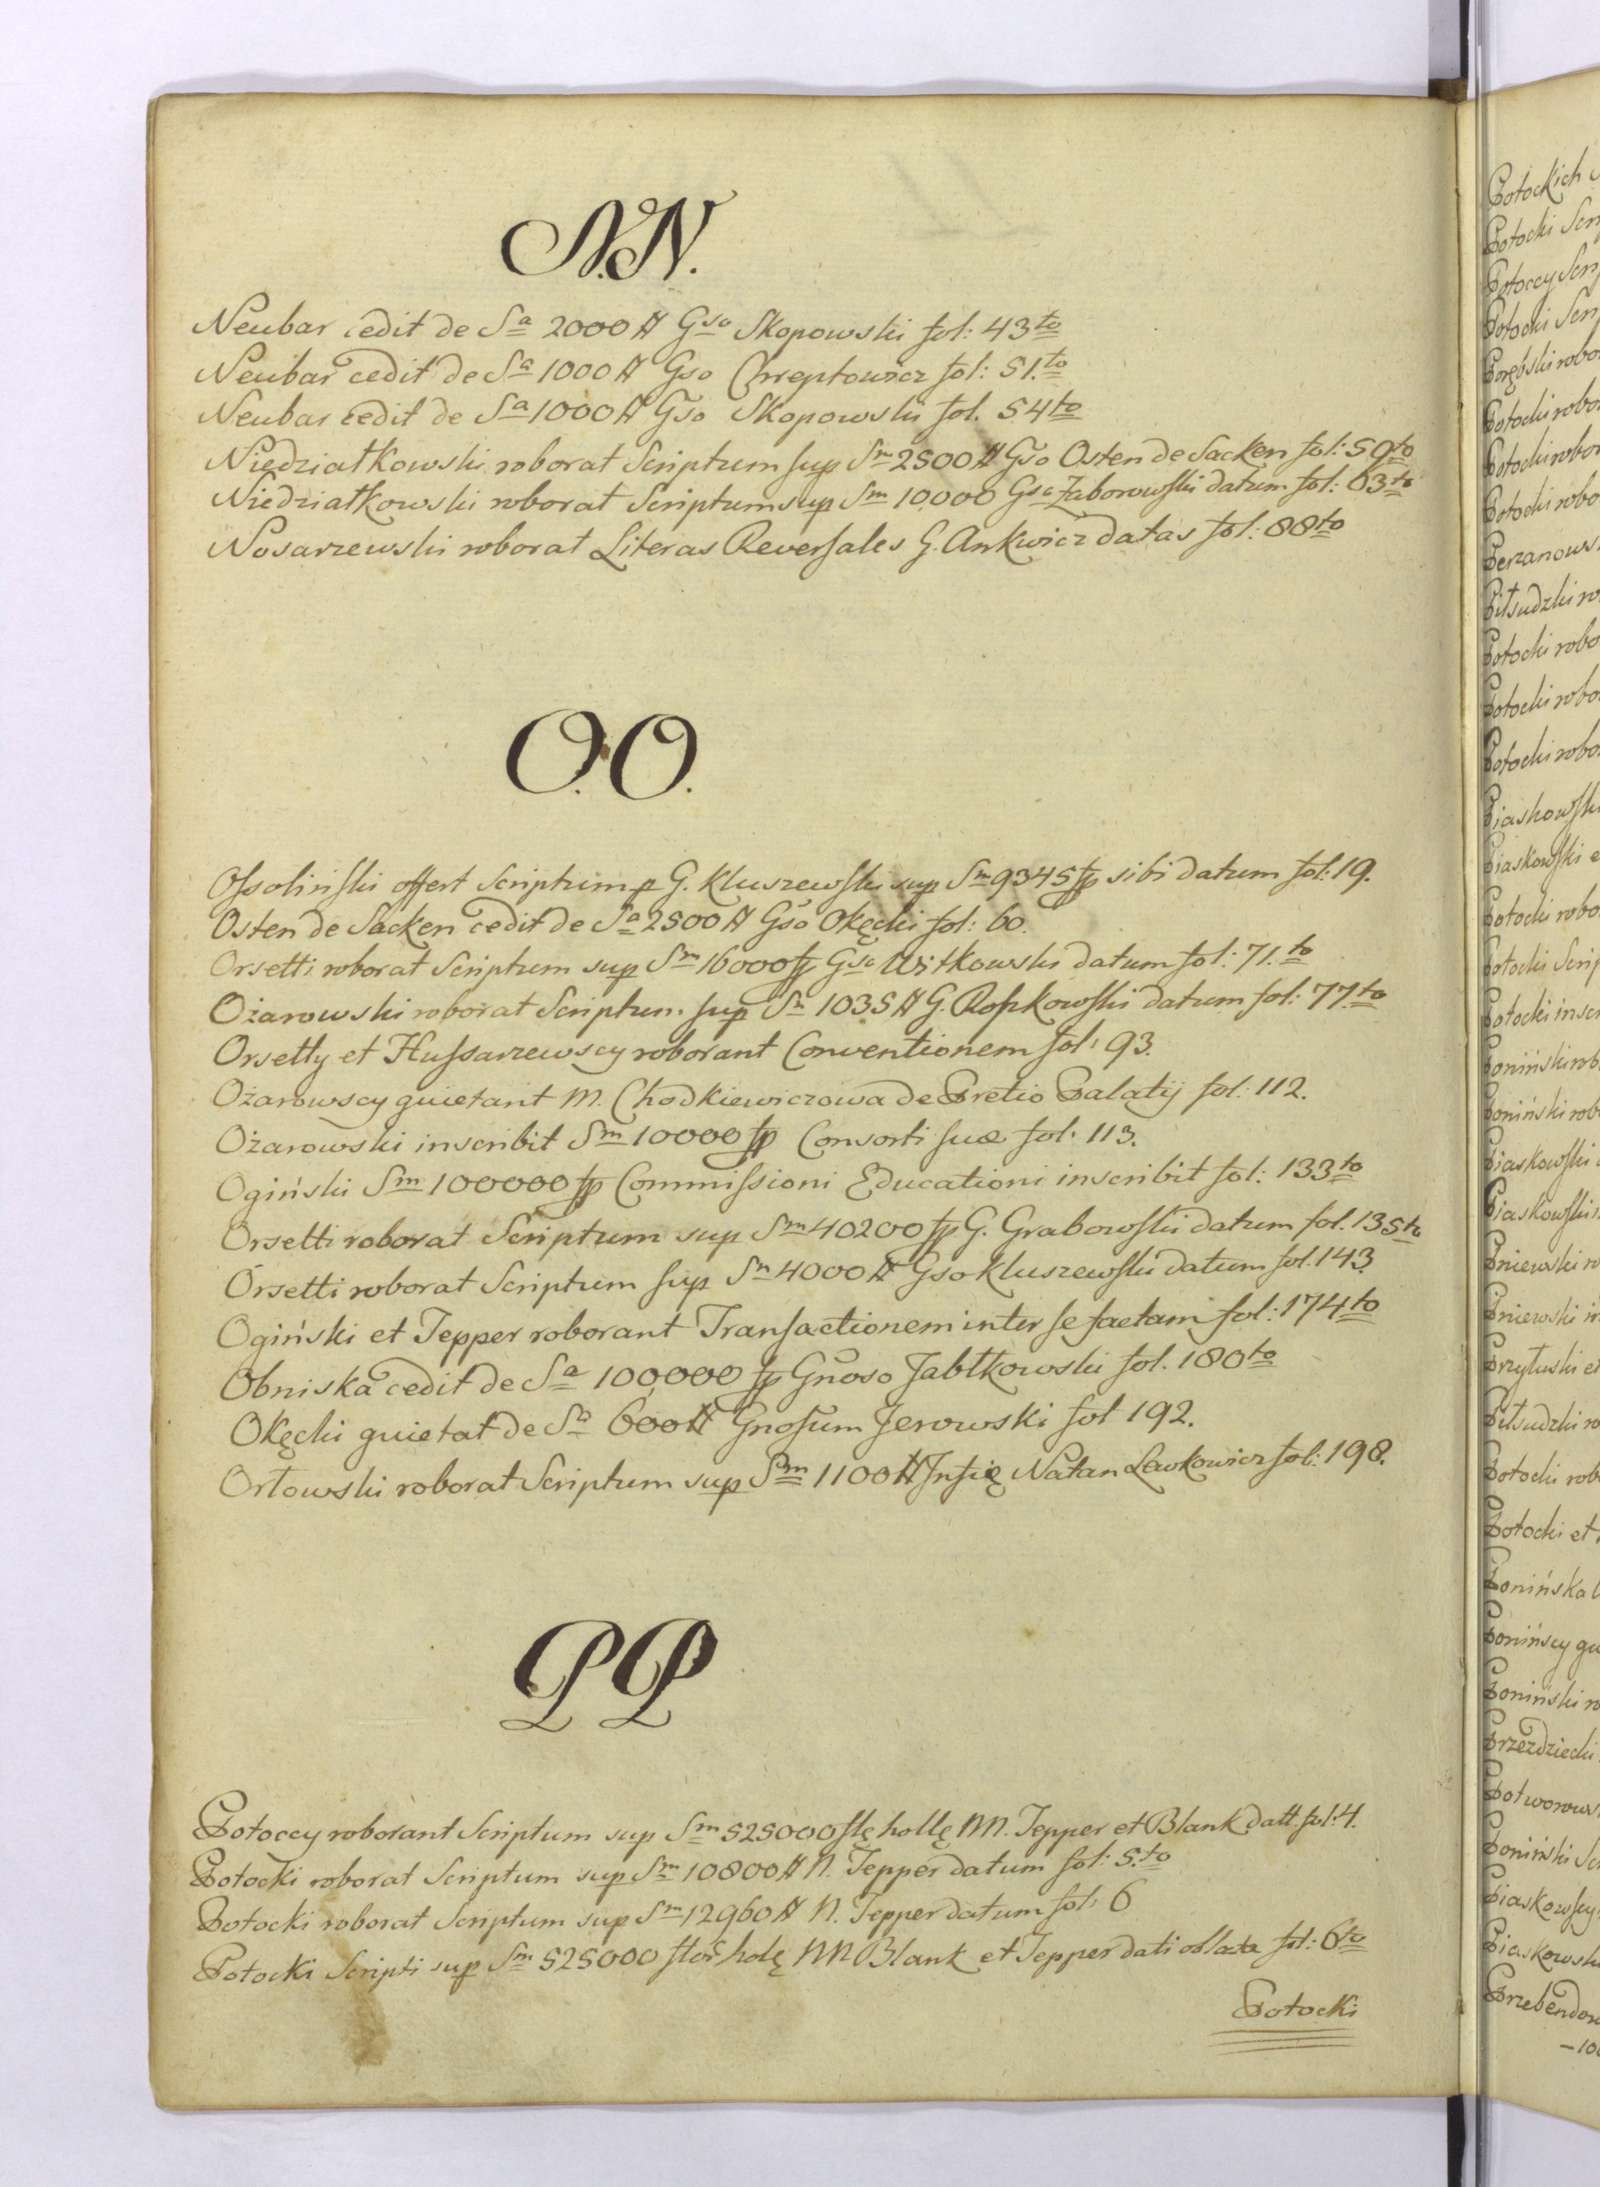 N.N.
Neubar cedit de Sa 2000 # Gso Skopowski fol: 43to
Neubar cedit de Sa 1000 # Gso Chreptowicz fol: 51.to
Neubar cedit de Sa 1000 # Gso Skopowski fol. 54to
Niedziatkowski roborat Scriptum sup Sm 2500 # Gso Osten de Sacken fol: 59to
Niedziatkowski roborat Scriptum sup Sm 10,000 Gso Zaborowski datum fol: 63to
Nosarzewski roborat Literas Reversales G. Ankwicz datas fol: 88to
O.O.
Ossoliński offert Scriptum p G. Kluszewski sup Sm 9345 fp sibi datum fol: 19.
Osten de Sacken cedit de Sa 2500 # Gso Okęcki fol: 60.
Orsetti roborat Scriptum sup Sm 16000 fp Gso Witkowski datum fol: 71.to
Ożarowski roborat Scriptum sup Sm 1035 # G. Roskowski datum fol: 77to
Orsetty et Hussarzewscy roborant Conventionem fol: 93.
Ożarowscy quietant M. Chodkiewiczowa de Pretio Palatij fol: 112.
Ożarowski inscribit Sm 10000 fp Consorti suæ fol: 113.
Ogiński Sm 100000 fp Commissioni Educationi inscribit fol: 133to
Orsetti roborat Scriptum sup Sm 40200 fp G. Grabowski datum fol. 135to
Orsetti roborat Scriptum sup Sm 4000 # Gso Kluszewski datum fol. 143.
Ogiński et Tepper roborant Transactionem inter se factam fol: 174to
Obniska cedit de Sa 100,000 fp Gnoso Jabłkowski fol. 180to
Okęcki quietat de Sa 600 # Gnosum Jerowski fol 192.
Orłowski roborat Scriptum sup Sm 1100 # Natan Lewkowicz fol: 198.
P P
Potoccy roborant Scriptum sup Sm 525000 flę hollę MM. Tepper et Blank datt. fol: 4.
Potocki roborat Scriptum sup Sm 10800 # N. Tepper datum fol: 5.to
Potocki roborat Scriptum sup Sm 12960 # N. Tepper datum fol: 6
Potocki Scripti sup Sm 525000 holę MM Blank et Tepper dati oblata fol: 6to
Potocki
Potockich
Potocki
Potoccy
Potocki
Porębski
Potocki
Potocki
Potocki
Piłsudzki
Potocki
Potocki
Potocki
Piaskowski
Potocki
Potocki
Potocki
Poniński
Poniński
Piaskowski
Piaskowski
Pniewski
Pniewski
Przyłuski
Piłsudzki
Potocki
Potocki et
Ponińska
Ponińscy
Poniński
Przezdziecki
Poniński
Piaskowscy